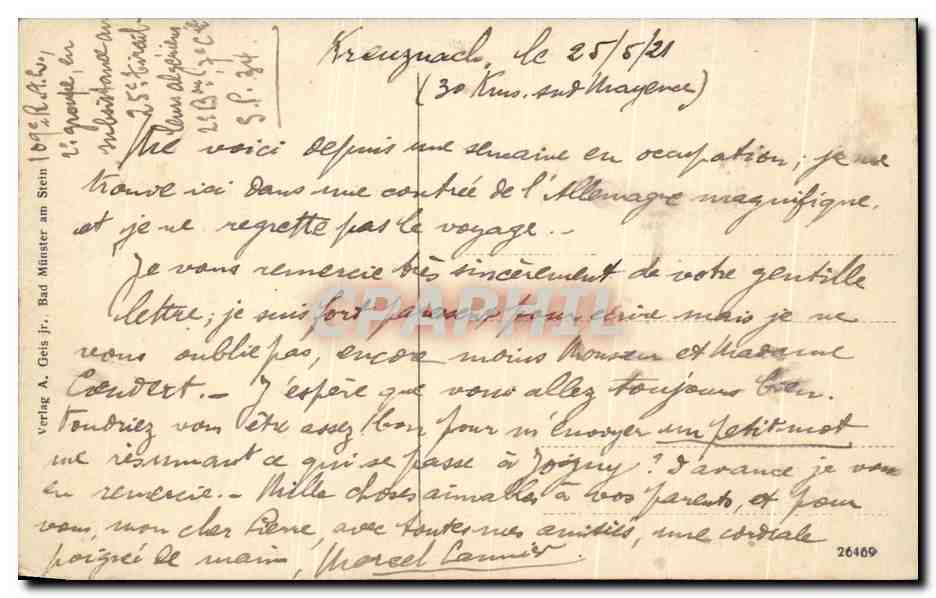 Kreuznach, le 25/5/21
(30 Kms. sud Mayence)
109e R.A.L.
2e groupe, en
subsistance au
25e tirail-
leurs algériens
2e Bon 7e Cie
S.P. 34.
Me voici depuis une semaine en occupation ; je me
trouve ici dans une contrée de l'Allemagne magnifique,
et je ne regrette pas le voyage. -
Je vous remercie très sincèrement de votre gentille
lettre ; je suis fort paresseux pour écrire mais je ne
vous oublie pas, encore moins Monsieur et Madame
. - J'espère que vous allez toujours bien.
Voudriez vous être assez bon pour m'envoyer un petit mot
me résumant ce qui se passe à Joigny ? D'avance je vous
en remercie. - Mille choses aimables à vos parents, et pour
vous, mon cher Pierre, avec toutes mes amitiés, une cordiale
poignée de main, Marcel
Verlag A. Geis jr., Bad Münster am Stein
26469
CPAPHIL